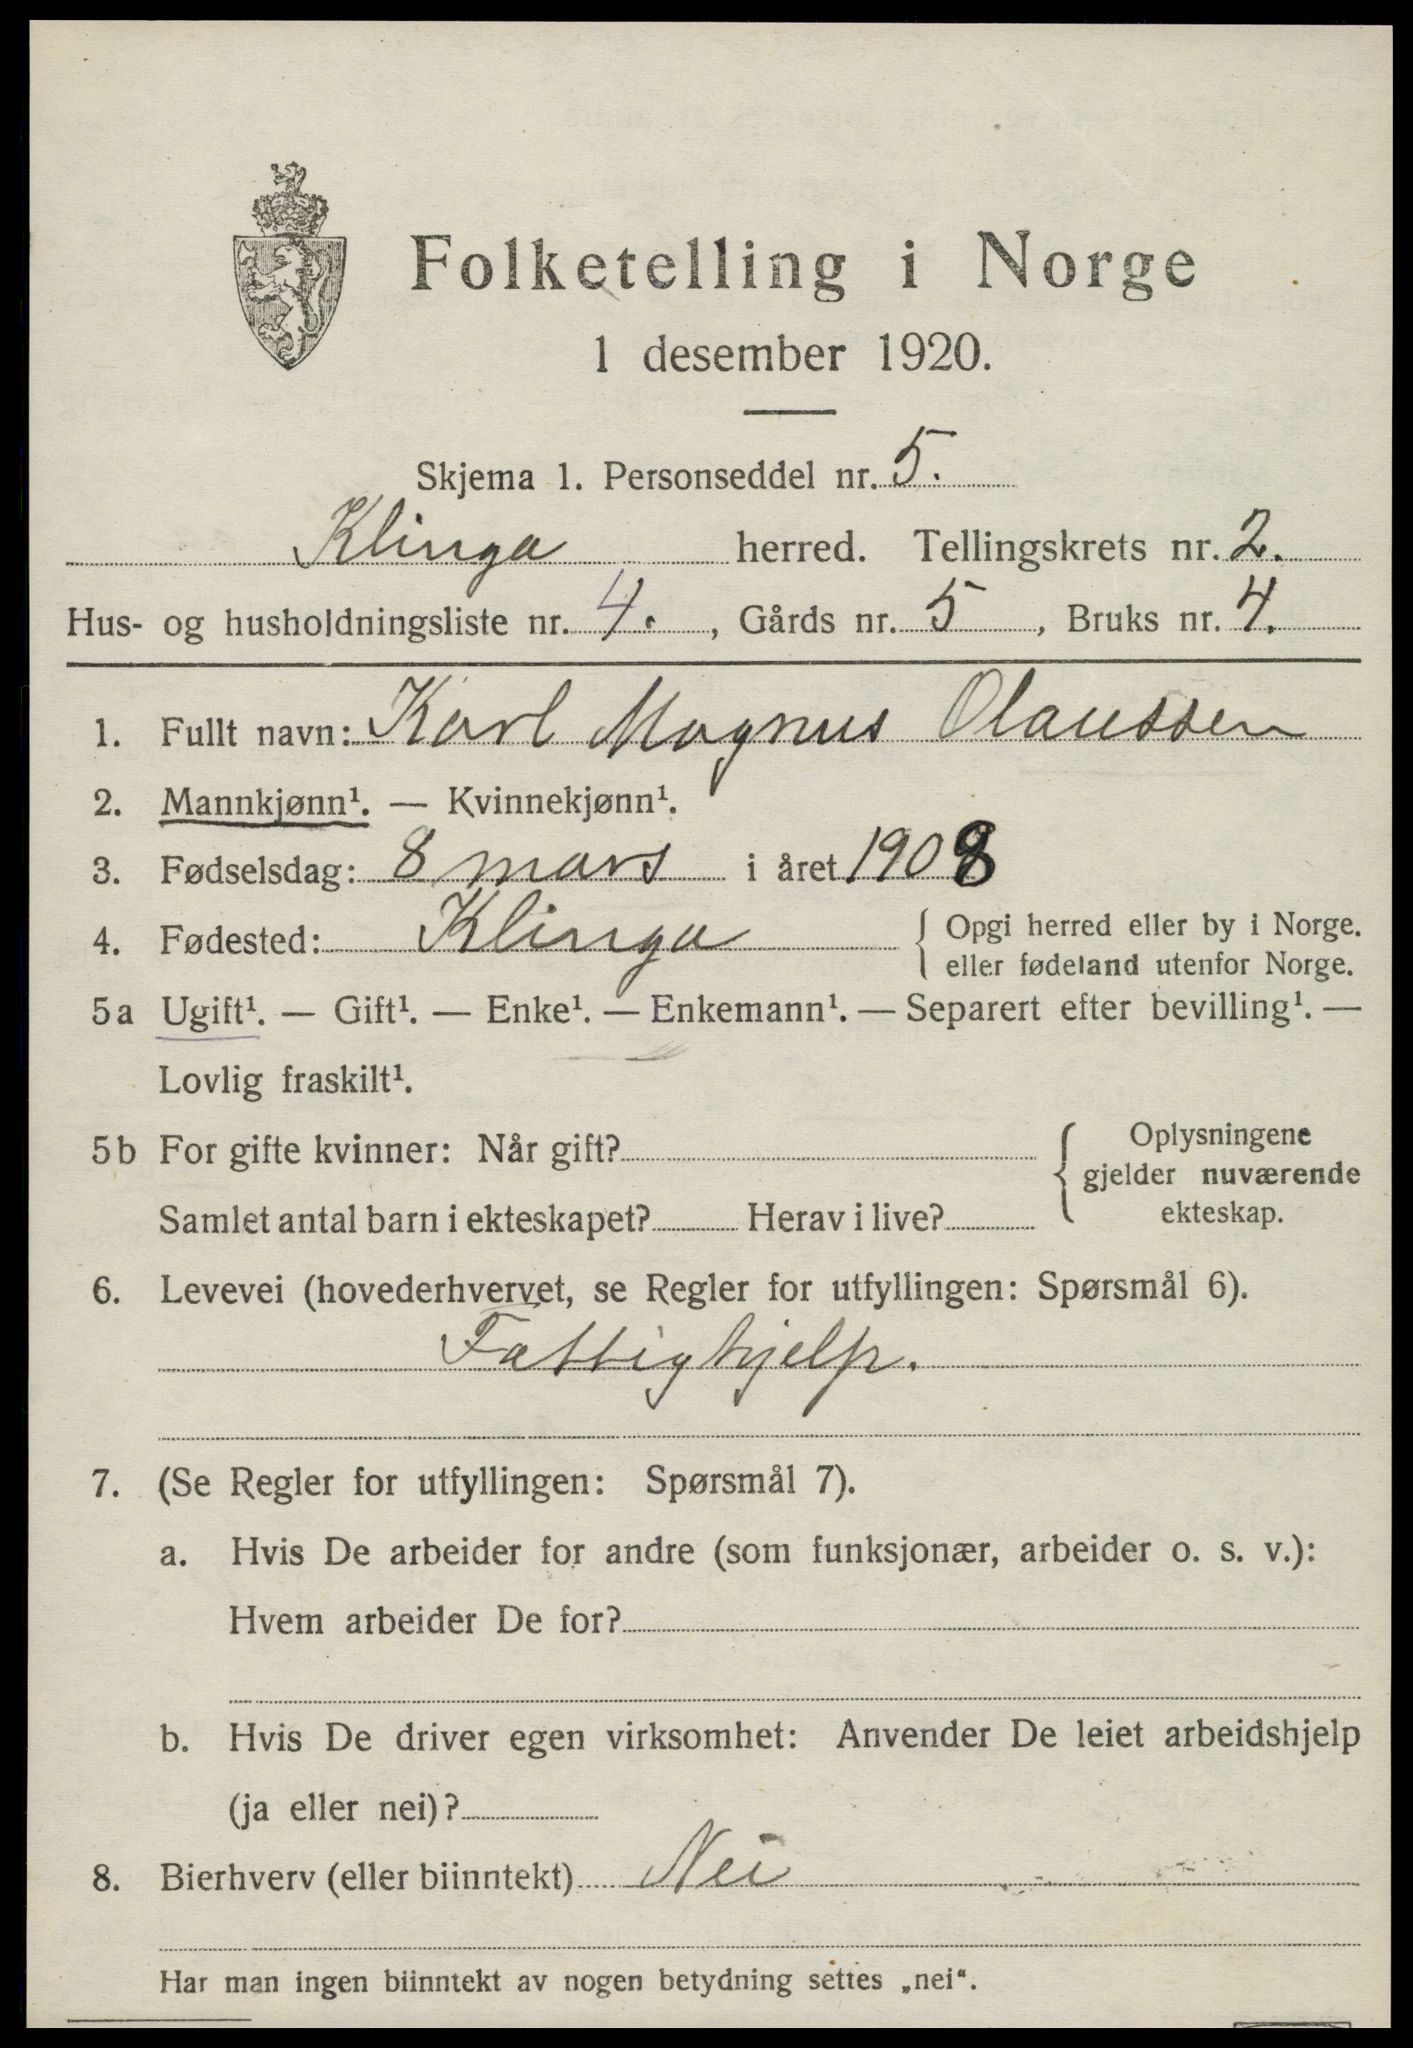 Folketelling i Norge
1 desember 1920.
Skjema 1. Personseddel nr. 5.
Klinga herred. Tellingskrets nr. 2.
Hus- og husholdningsliste nr. 4. , Gårds nr. 5 , Bruks nr. 4.
1. Fullt navn: Karl Magnus Olaussen
2. Mannkjønn¹. — Kvinnekjønn¹.
3. Fødselsdag: 8 mars i året 1908
4. Fødested: Klinga { Opgi herred eller by i Norge.
eller fødeland utenfor Norge.
5a Ugift¹. — Gift¹. — Enke¹. — Enkemann¹. — Separert efter bevilling¹. —
Lovlig fraskilt¹.
5b For gifte kvinner: Når gift? { Oplysningene
gjelder nuværende
Samlet antal barn i ekteskapet? Herav i live? ekteskap.
6. Levevei (hovederhvervet, se Regler for utfyllingen: Spørsmål 6).
Fattighjelp.
7. (Se Regler for utfyllingen: Spørsmål 7).
a. Hvis De arbeider for andre (som funksjonær, arbeider o. s. v.):
Hvem arbeider De for?
b. Hvis De driver egen virksomhet: Anvender De leiet arbeidshjelp
(ja eller nei)?
8. Bierhverv (eller biinntekt) Nei
Har man ingen biinntekt av nogen betydning settes „nei“.